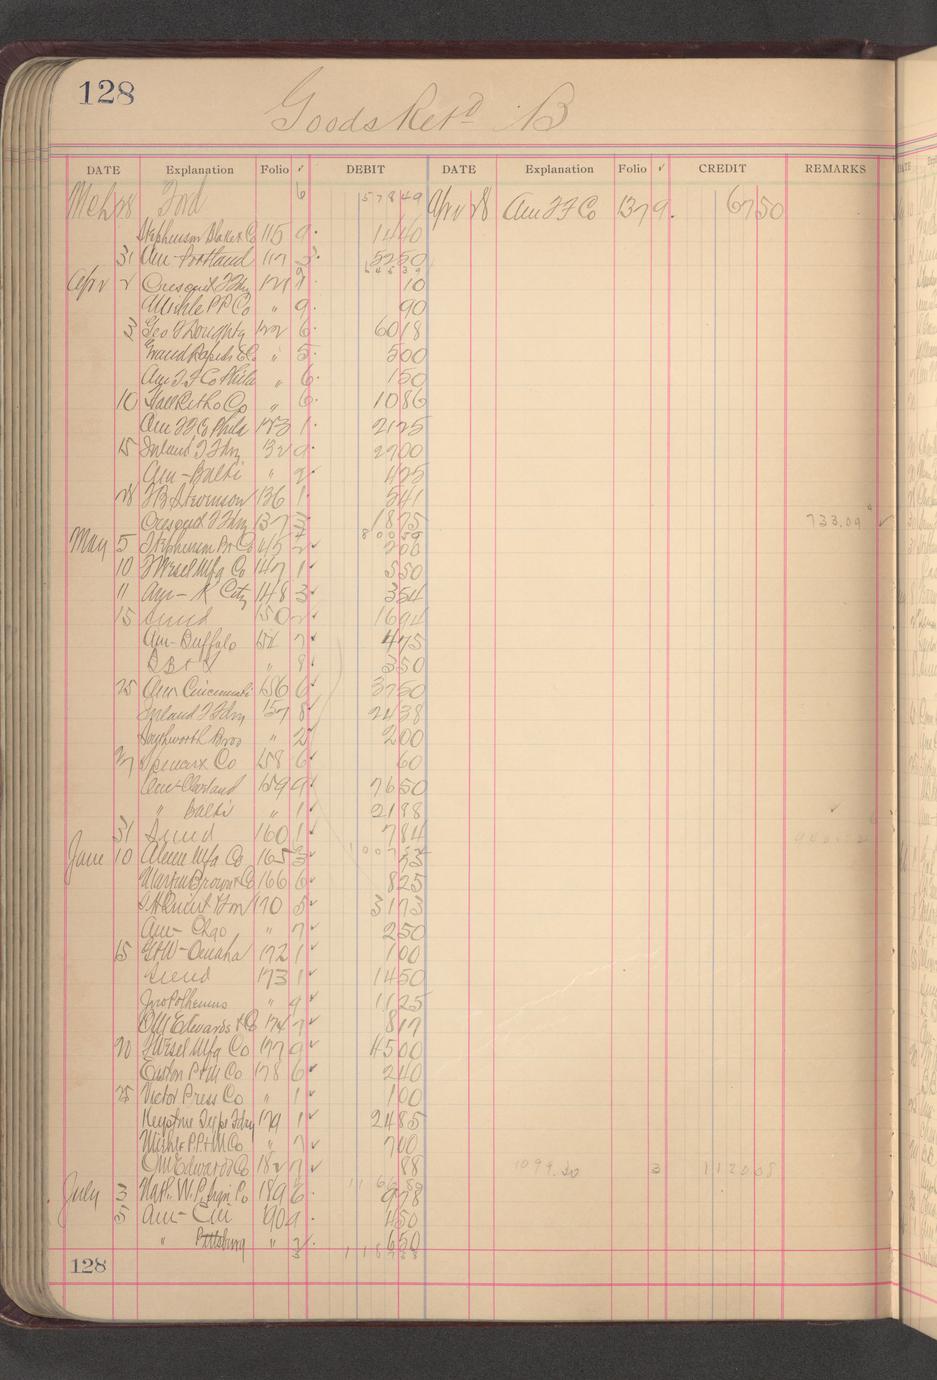 128
Goods Retd B
DATE Explanation Folio ✓ DEBIT DATE Explanation Folio ✓ CREDIT REMARKS
Mch 28 Ford 6 57849 Apr 28 Am T F Co 137 9. 6750
Stephenson Blake & Co 115 9. 1440
31 Am-Portland 117 3. 5250
Apr 2 Crescent T Fdry 121 10
Miehle P P Co " 9. 90
3 Geo G Doughty 122 6. 6018
Grand Rapids E Co " 5. 500
Am T F Co Phila " 6. 150
10 Hall Litho Co " 6. 1086
Am T F Co Phila 123 1. 2125
15 Inland T Fdry 132 9. 2900
Am-Balti " 2 475
28 T B Stevenson 136 1. 541
Crescent T Fdry 137 3 1875 733.09 ✓
May 5 Stephenson Bl Co 145 2 ✓ 200
10 F Wesel Mfg Co 147 1 ✓ 550
11 Am-K City 148 3 ✓ 354
15 Sund 150 2 ✓ 1694
Am-Buffalo 151 7 ✓ 475
B B & S " 9 ✓ 350
25 Am Cincinnati 156 6 ✓ 3750
Inland T Fdry 157 8 ✓ 2438
Southworth Bros " 2 ✓ 200
27 Co 158 6 ✓ 60
Am-Cleveland 159 9 ✓ 7650
" Balti " 1 ✓ 2188
31 Sund 160 1 ✓ 784
June 10 Mfg Co 165 3 ✓ 75
Martin Brown & Co 166 6 ✓ 825
170 5 ✓ 3173
Am-Chgo " 7 ✓ 250
15 G & W-Omaha 172 1 ✓ 100
Sund 173 1 ✓ 1450
Jno Polhemus " 9 ✓ 1125
O M Edwards & Co 174 7 ✓ 817
20 F Wesel Mfg Co 177 9 ✓ 4500
Co 178 6 ✓ 240
25 Victor Press Co " 1 ✓ 100
Keystone Type Fdry 179 1 ✓ 2485
Miehle P.P. & M Co " 7 ✓ 700
O M Edwards Co 182 7 ✓ 88 1099.50 3 112008
July 3 Nat. W. P. Co 189 6. 978
5 Am-Cin 190 9. 450
" Pittsburg " 3. 650
128